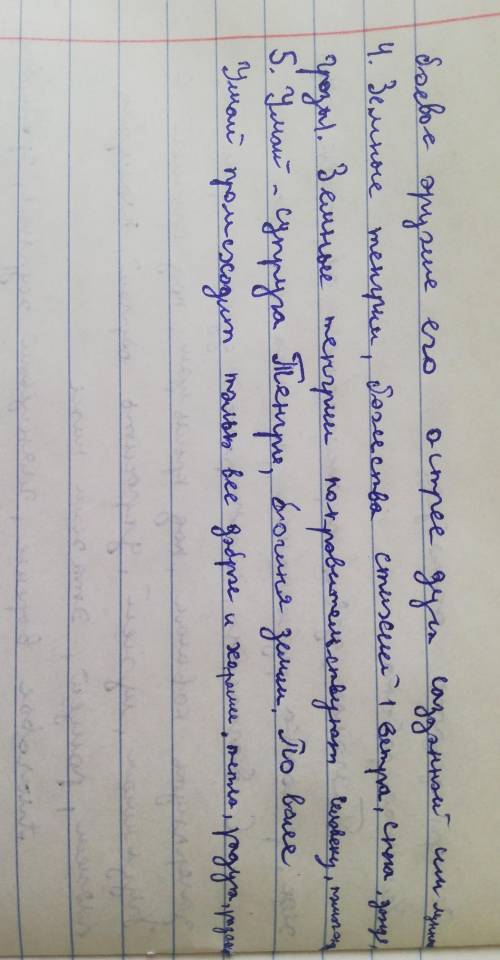 боевое оружие его острее духа созданной им
4. Земные тенгрии, божества стихий, ветра, снега, дождя,
грозы. Земные тенгрии покровительствуют человеку,
5. Умай - супруга Тенгри, богиня земли. По воле
Умай происходит только все доброе и хорошее, тепло, радуга,